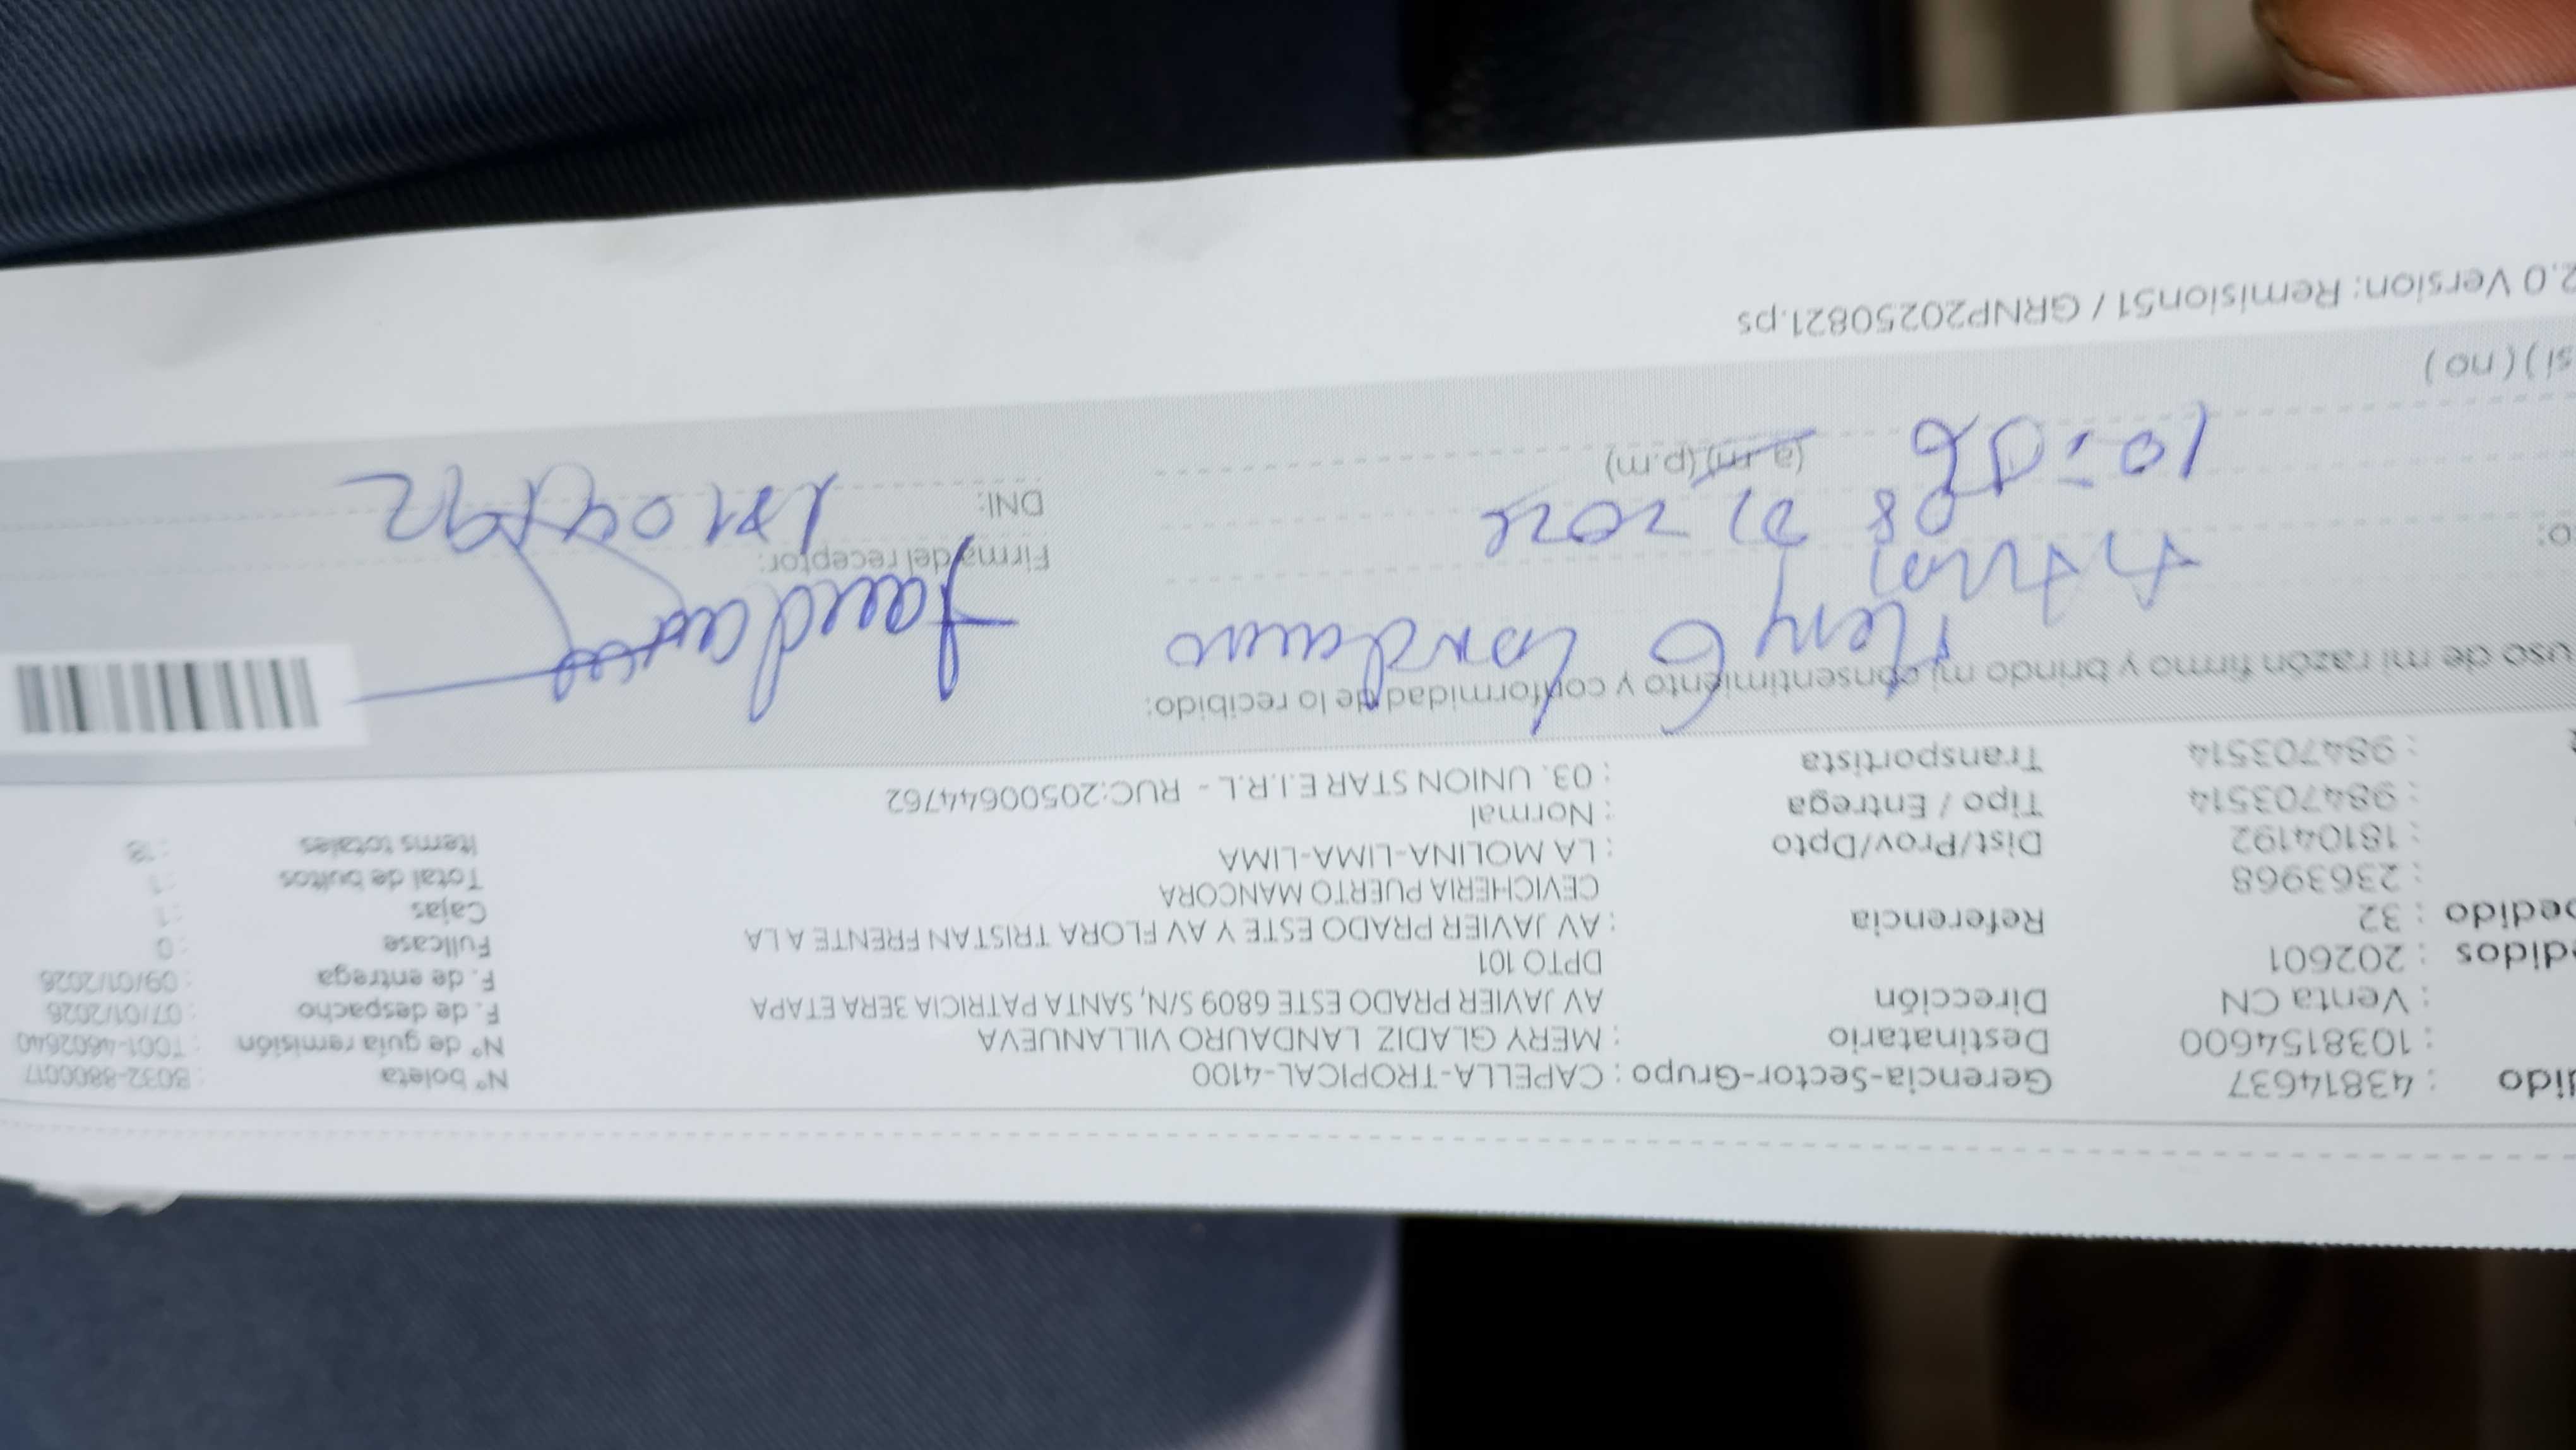 dido : 43814637 Gerencia-Sector-Grupo : CAPELLA-TROPICAL-4100 N° boleta : B032-8800017
: 1038154600 Destinatario : MERY GLADIZ LANDAURO VILLANUEVA N° de guia remisión : T001-4602640
: Venta CN Dirección AV JAVIER PRADO ESTE 6809 S/N, SANTA PATRICIA 3ERA ETAPA F. de despacho : 07/01/2026
edidos : 202601 DPTO 101 F. de entrega : 09/01/2026
pedido : 32 Referencia : AV JAVIER PRADO ESTE Y AV FLORA TRISTAN FRENTE A LA Fullcase : 0
: 2363968 CEVICHERIA PUERTO MANCORA Cajas : 1
: 18104192 Dist/Prov/Dpto : LA MOLINA-LIMA-LIMA Total de bultos : 1
: 984703514 Tipo / Entrega : Normal Items totales
: 984703514 Transportista : 03. UNION STAR E.I.R.L - RUC:20500644762
uso de mi razón firmo y brindo mi consentimiento y conformidad de lo recibido:
Mery G Landauro
o: Firma del receptor:
08 01 2026 DNI: 18104192
10:06 (a.m)(p.m)
si ) ( no )
2.0 Version: Remision51 / GRNP20250821.ps